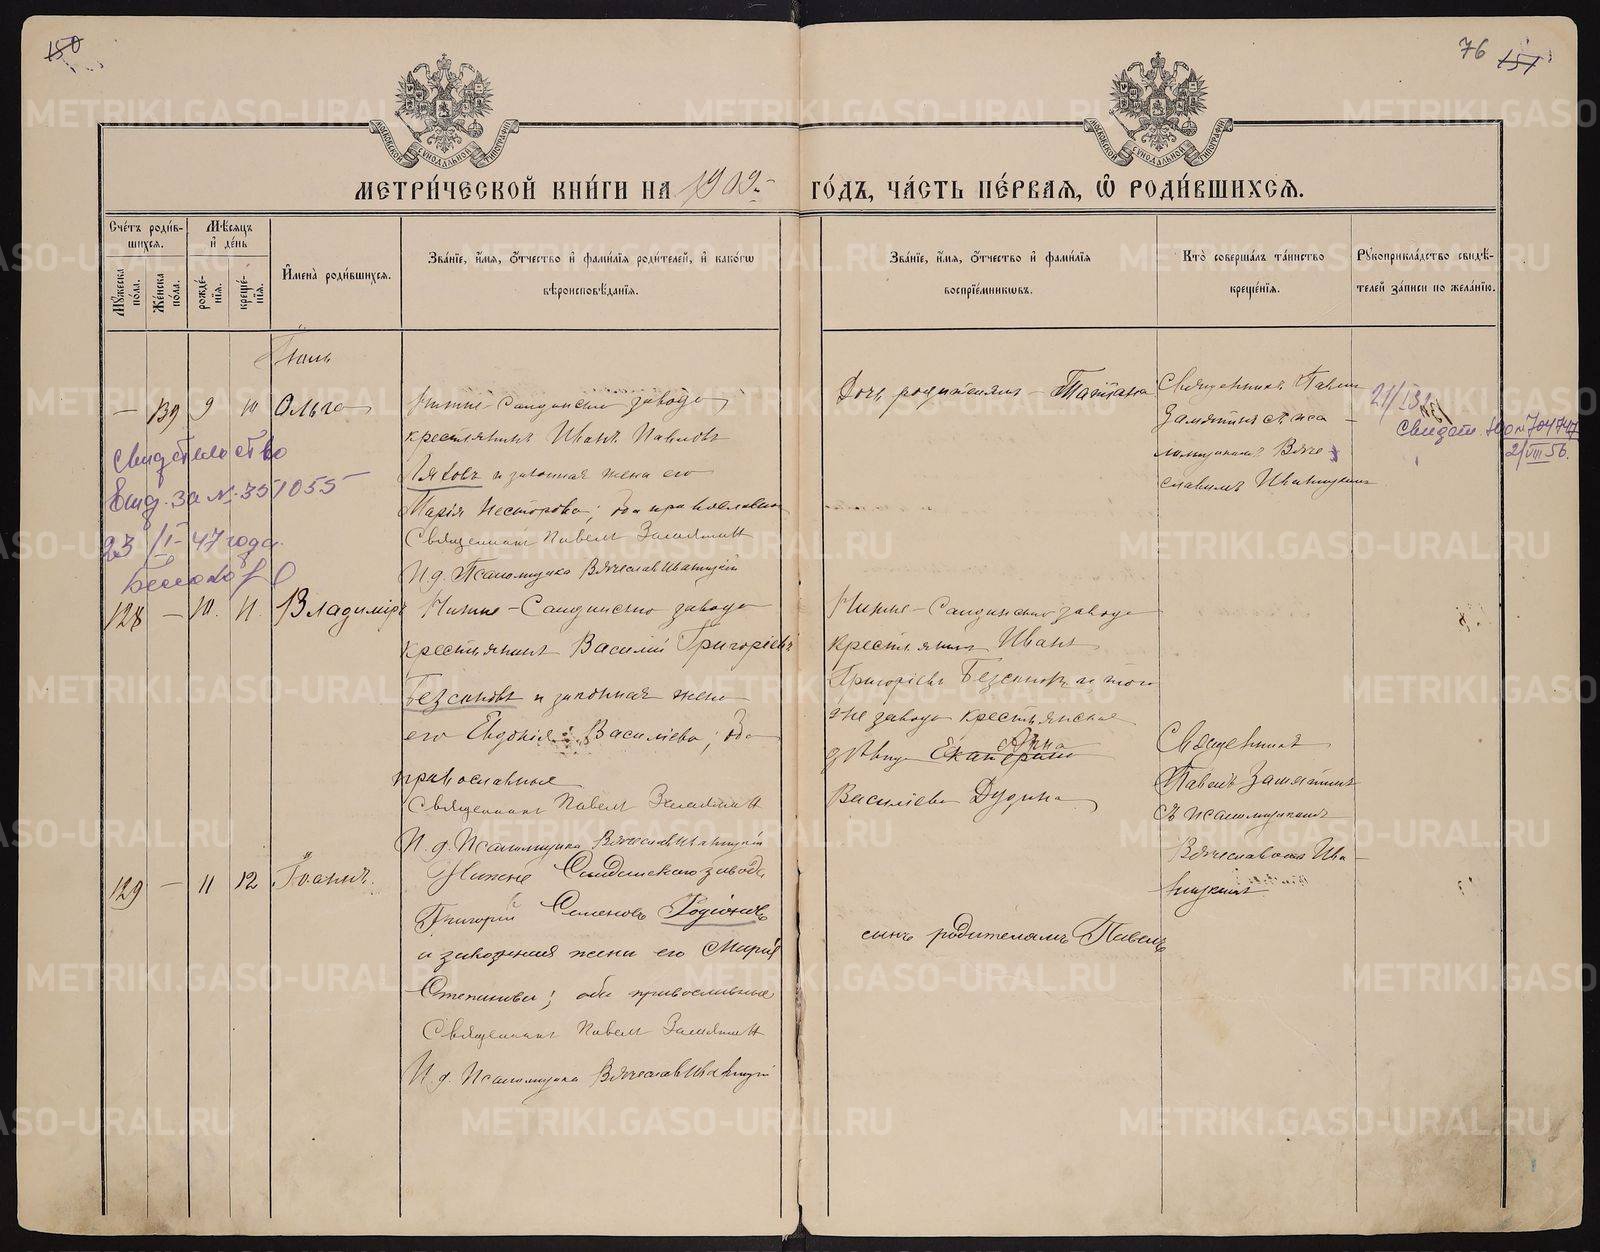 150
76 151
МОСКОВСКОЙ СѴНОДАЛЬНОЙ ТИПОГРАФІИ
МОСКОВСКОЙ СѴНОДАЛЬНОЙ ТИПОГРАФІИ
МЕТРИ́ЧЕСКОЙ КНИ́ГИ НА 1909
ГО́ДЪ, ЧА́СТЬ ПЕ́РВАЯ, Ѡ РОДИ́ВШИХСѦ.
Сче́тъ роди́в-
шихсѧ.
Мꙋжеска по́ла.
Же́нска по́ла.
Мѣ́сѧцъ
и҆ де́нь
рожде́-
нїѧ.
креще́-
нїѧ.
И҆мена̀ роди́вшихсѧ.
Зва́нїе, и҆́мѧ, ѻ҆́тчество и҆ фами́лїѧ роди́телей, и҆ како́гѡ
вѣроисповѣ́данїѧ.
Зва́нїе, и҆́мѧ, ѻ҆́тчество и҆ фами́лїѧ
воспрїе́мниковъ.
Кто̀ соверша́лъ та́инство
креще́нїѧ.
Рꙋкоприкла́дство свидѣ́-
телей за́писи по жела́нїю.
Іюль
— 139 9 10 Ольга
Нижне-Салдинскаго завода
крестьянинъ Иванъ Павловъ
Ляховъ и законная жена его
Марія Несторова; оба православные
Священникъ Павелъ Замятинъ
И. д. Псаломщика Вячеславъ Иваницкій
Дочь родителямъ – Татіана
Священникъ Павелъ
Замятинъ съ пса-
ломщикомъ Вяче-
славомъ Иваницкимъ
Свидетельство
Выд. за № 351055
23/I–47 года.
21/I 31
Свидет. № 704747
2/VIII 56.
128 — 10. 11. Владиміръ
Нижне-Салдинскаго завода
крестьянинъ Василій Григорьевъ
Безсоновъ и законная жена
его Евдокія Васильева; оба
православные
Священникъ Павелъ Замятинъ
И. д. Псаломщика Вячеславъ Иваницкій
Нижне-Салдинскаго завода
крестьянинъ Иванъ
Григорьевъ Безсоновъ и того
же завода крестьянская
дѣвица Екатерина Анна
Васильева Дудина
Священникъ
Павелъ Замятинъ
съ псаломщикомъ
Вячеславомъ Ива-
ницкимъ
129 — 11 12 Іоаннъ.
Нижне Салдинскаго завода
Григорій Семеновъ Родіоновъ
и законная жена его Марія
Степанова; оба православные
Священникъ Павелъ Замятинъ
И. д. Псаломщика Вячеславъ Иваницкій
сынъ родителямъ Павелъ
METRIKI.GASO-URAL.RU